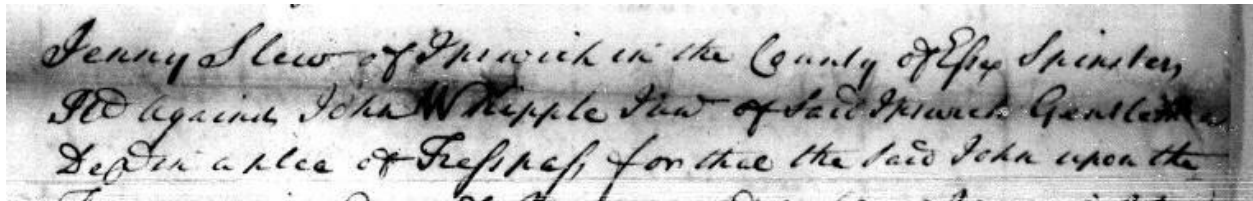 Jenny Slew of Ipswich in the County of Essex Spinster,
Pltf against John Whipple Junr of said Ipswich Gentleman
Deft in a plea of Trespass for that the said John upon the